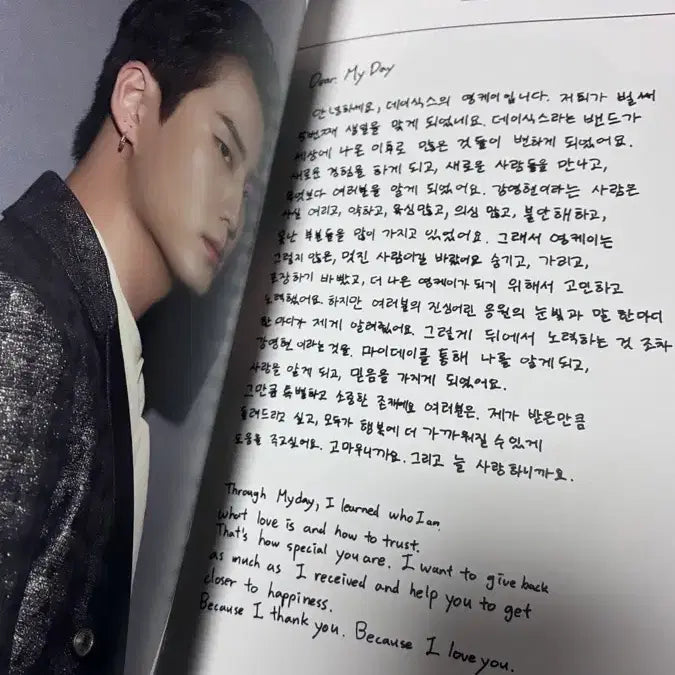 Dear. My Day
안녕하세요, 데이식스의 영케이입니다. 저희가 벌써
5번째 생일을 맞게 되었네요. 데이식스라는 밴드가
세상에 나온 이후로 많은 것들이 변하게 되었어요.
새로운 경험을 하게 되고, 새로운 사람들을 만나고,
무엇보다 여러분을 알게 되었어요. 강영현이라는 사람은
사실 어리고, 약하고, 욕심많고, 의심 많고, 불안해하고,
못난 부분들을 많이 가지고 있었어요. 그래서 영케이는
그렇지 않은, 멋진 사람이길 바랐어요 숨기고, 가리고,
포장하기 바빴고, 더 나은 영케이가 되기 위해서 고민하고
노력했어요. 하지만 여러분의 진심어린 응원의 눈빛과 말 한마디
한마디가 제게 알려줬어요. 그렇게 뒤에서 노력하는 것 조차
강영현이라는 것을. 마이데이를 통해 나를 알게 되고,
사랑을 알게 되고, 믿음을 가지게 되었어요.
그만큼 특별하고 소중한 존재에요 여러분은. 제가 받은만큼
돌려드리고 싶고, 모두가 행복에 더 가까워질 수 있게
도움을 주고싶어요. 고마우니까요. 그리고 늘 사랑하니까요.
Through Myday, I learned who I am.
what love is and how to trust.
That's how special you are. I want to give back
as much as I received and help you to get
closer to happiness.
Because I thank you. Because I love you.